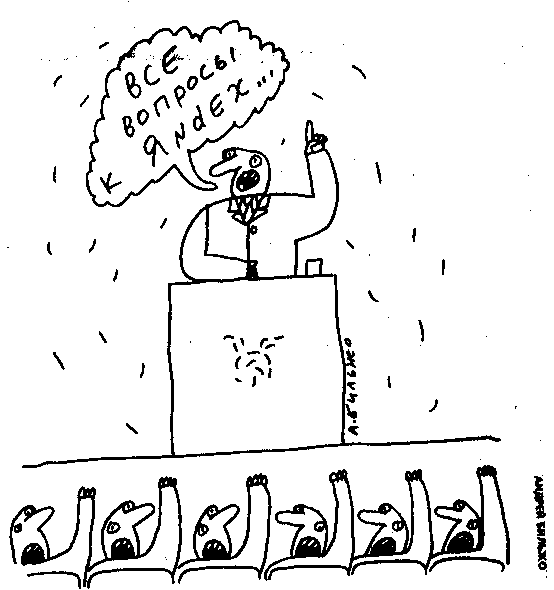 ВСЕ
ВОПРОСЫ
К ЯNdEX...
А.БИЛЬЖО
АНДРЕЙ БИЛЬЖО.